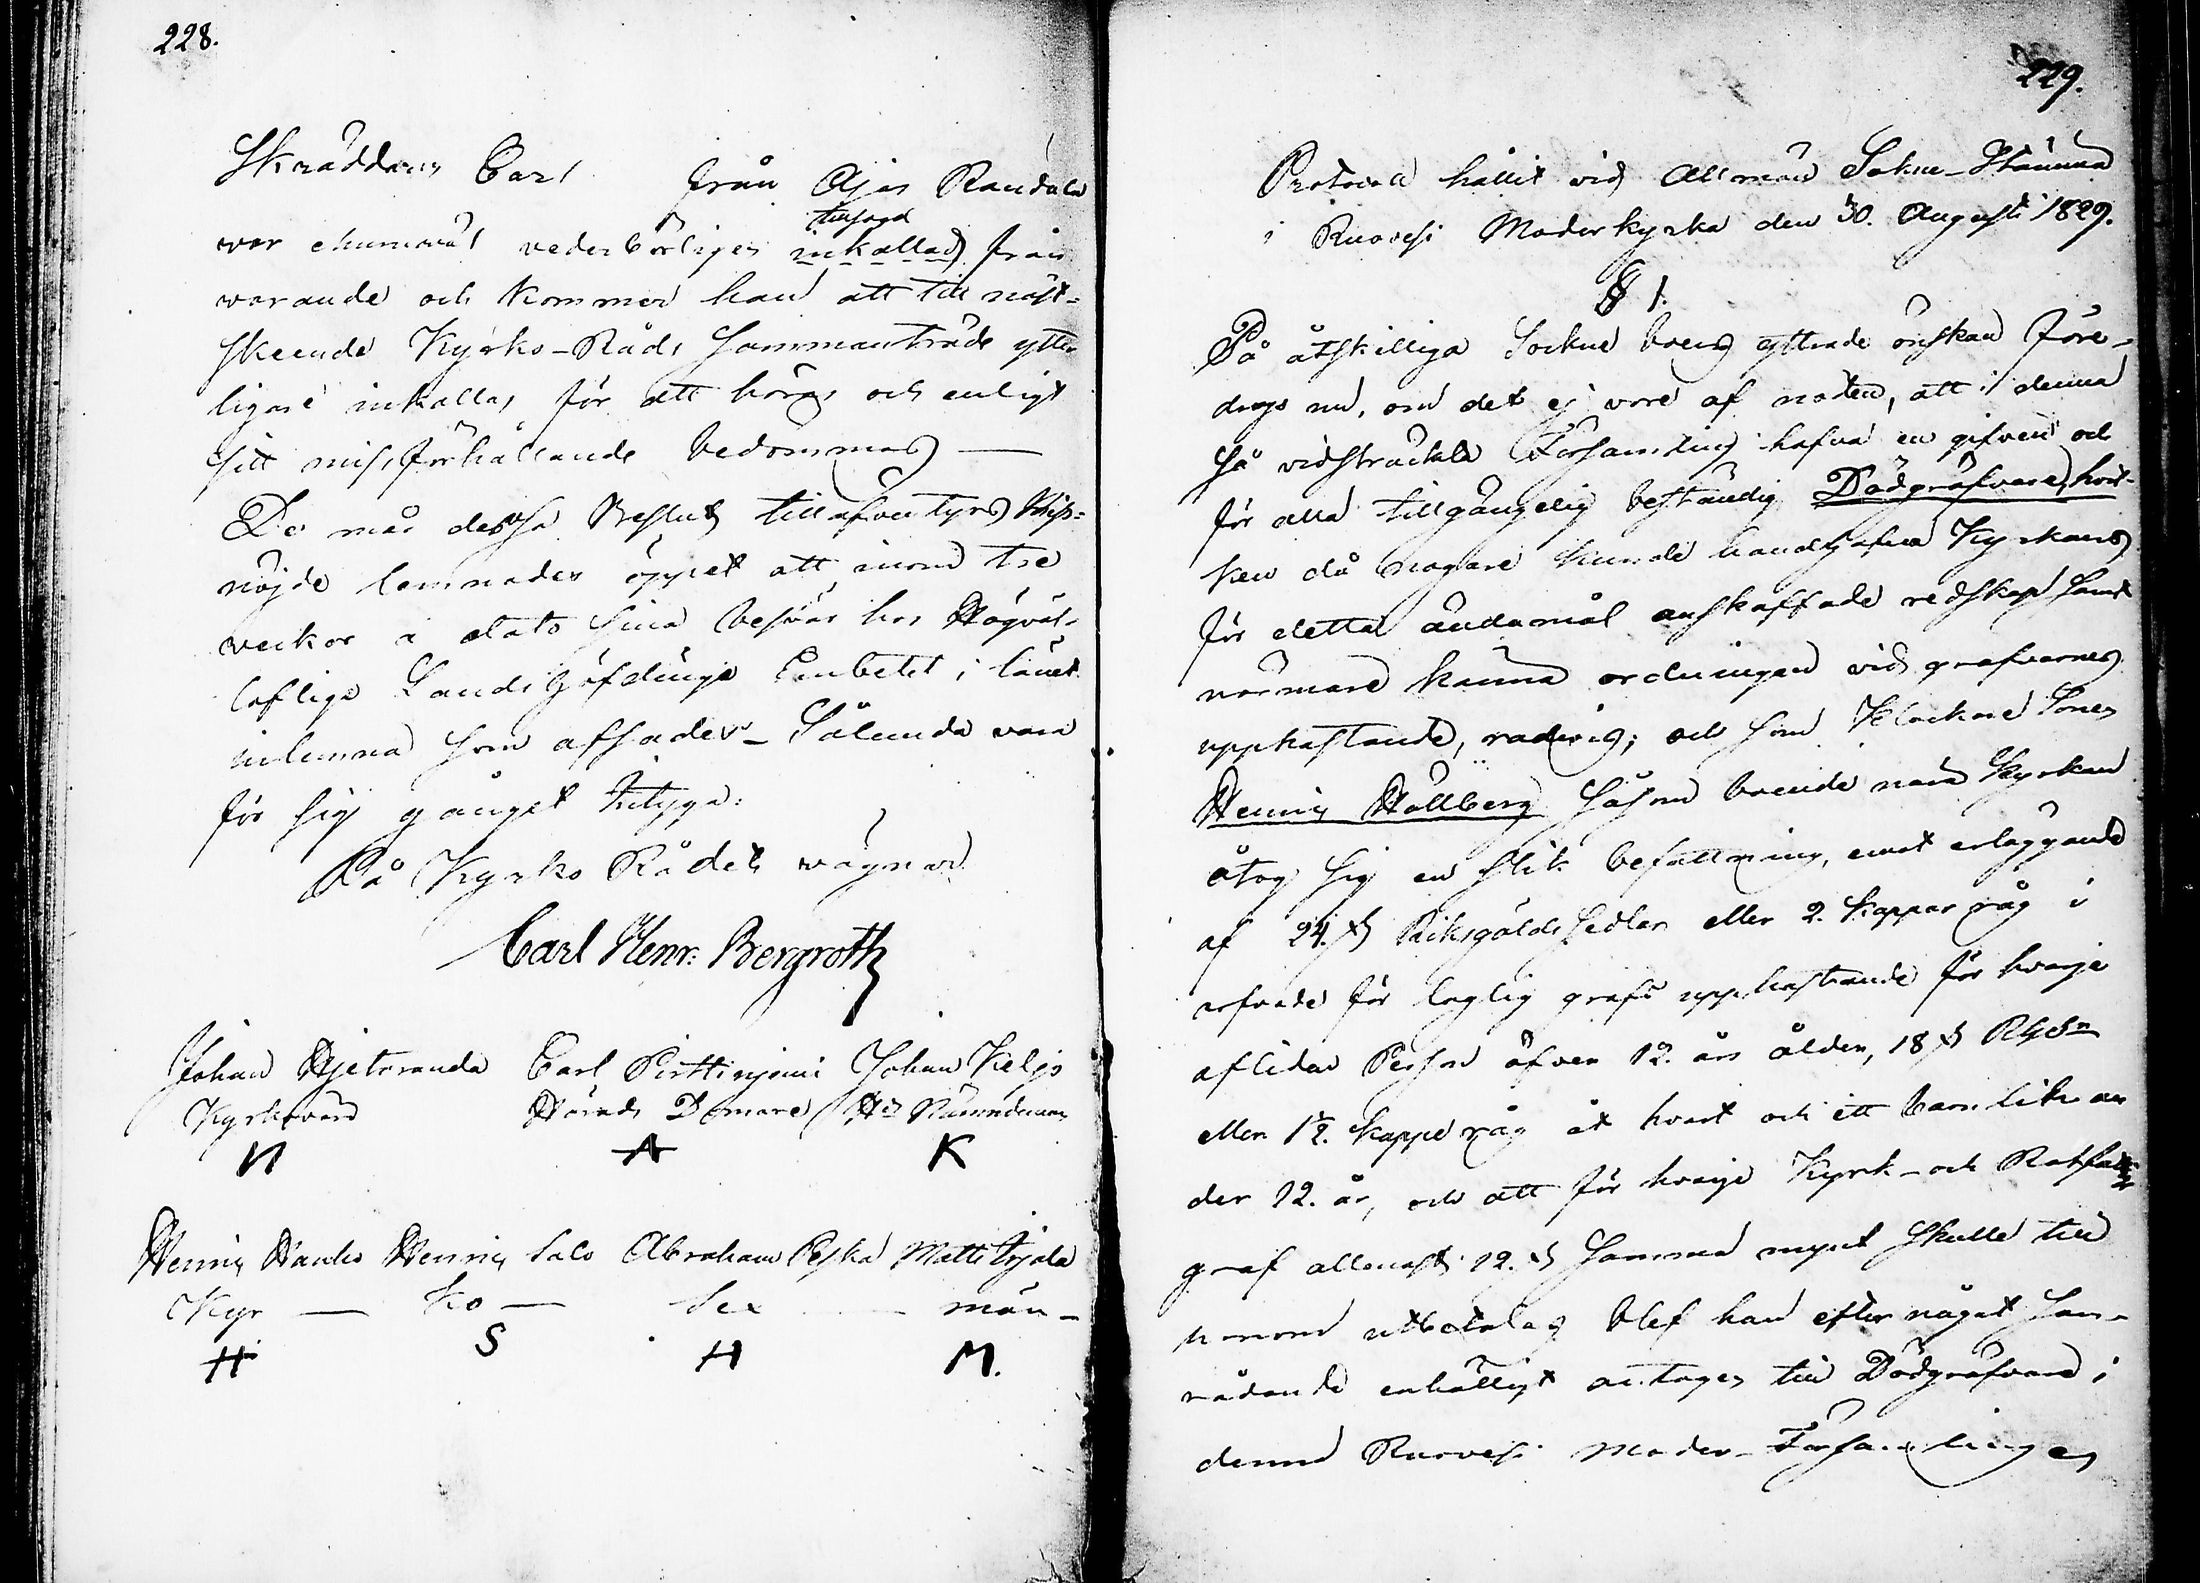 228.
Skräddaren Carl från Ajas Randala
tillsagd
war ehuruwäl vederbörligen inkallad från
warande och kommer han att till näst-
skeende Kyrko-Råds Sammanträde ytter
ligare inkallas för att höras och enligt
sitt missförhållande bedömmas —
De med dessa Beslut tilläfventyrs Miss-
nöjde lemnades öppet att inom tre
veckor a dato sina besvär hos Högväl-
loflige Landshöfdinge Embetet i länet
inlemna som afsades. Sålunda vara
för sig gånget betyga:
På Kyrko Rådets wägnar
Carl Henr: Bergroth
Johan Hjetoranda Carl Pirttinjemi Johan Keljo
Kyrkovärd Härads Domare Hd Nämndeman
N A K
Henric Hanho Henric Salo Abraham Peska Matti Yrjola
Kyr — ko — Sex — män —
H S H M.
229.
Protocoll hållit vid Allmän Sokne-Stämma
i Ruovesi Moderkyrka den 30. Augusti 1829.
§ 1.
På åtskilliga Sockne boers yttrade önskan före-
drogs nu, om det ej vore af nöden, att i denna
så vidsträckta Församling hafva en gifven och
för alla tillgängelig beständig Dödgräfvare, hvil-
ken då nogare kunde handhafva Kyrkans
för detta ändamål anskaffade redskap samt
närmare känna ordningen vid grafvarnes
uppkastande, radvis; och som Klockare Sonen
Henric Hällberg såsom boende nära Kyrkan
åtog sig en slik befattning, emot erläggande
af 24. s Riksgälds sedlar eller 2. kappar råg i
arfvode för laglig grafs uppkastande för hvarje
afliden Person öfver 12. års ålder, 18 s RGSr
eller 1½. kappe råg åt hvart och ett barn likr un
der 12. år, och att för hvarje Kyrk- och Rotfattig
graf allenast 12. s samma mynt skulle till
honom utbetalas blef han efter något sam-
rådande enhälligt antagen till Dödgräfvare i
denna Ruovesi Moder-Församlingen